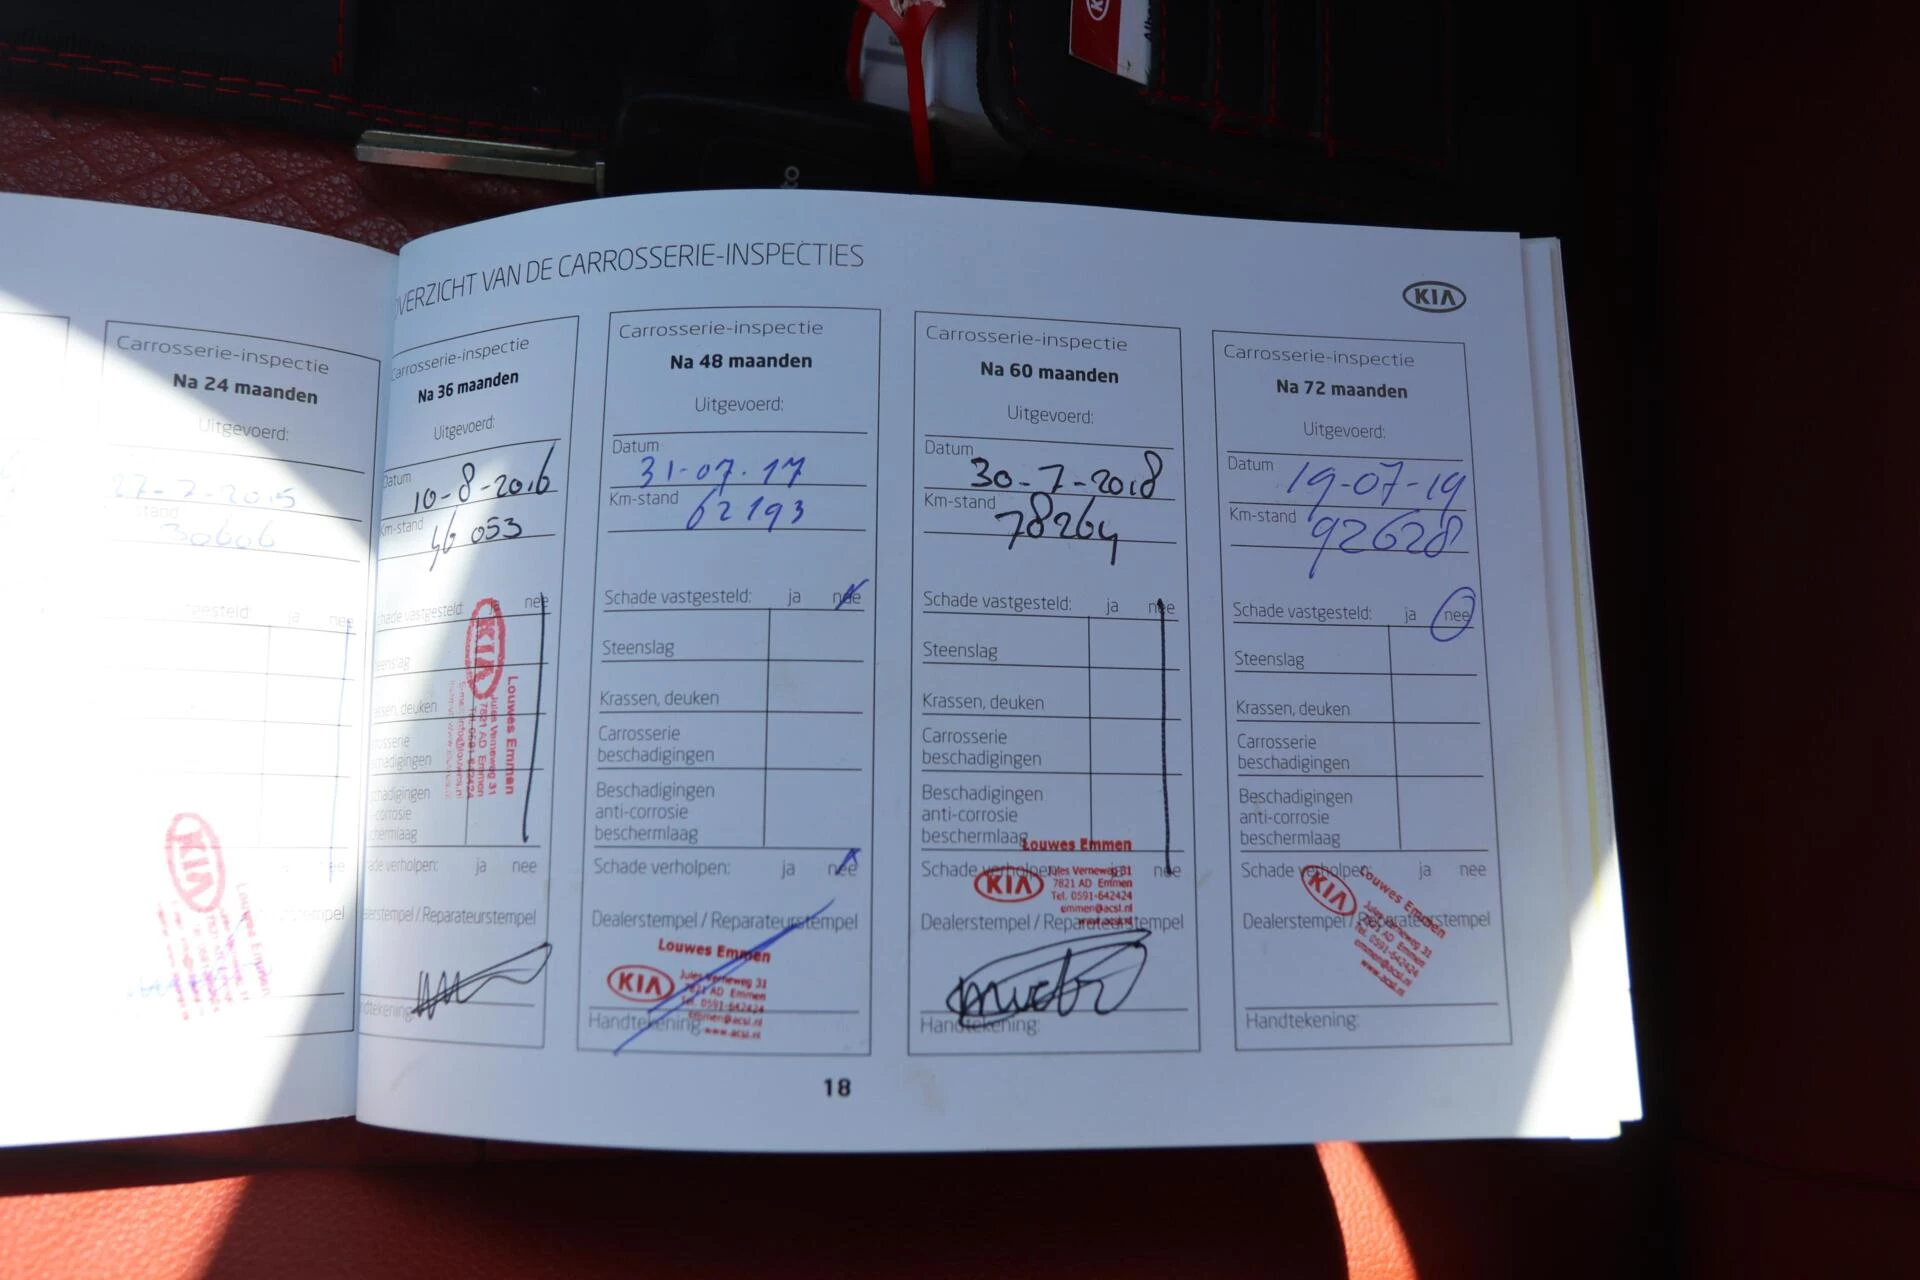 OVERZICHT VAN DE CARROSSERIE-INSPECTIES
KIA
Carrosserie-inspectie
Na 24 maanden
Uitgevoerd:
27-7-2015
stand
30606
tgesteld: ja nee
nee
KIA
Louwes Emmen
tempel
Carrosserie-inspectie
Na 36 maanden
Uitgevoerd:
Datum
10-8-2016
Km-stand
46 053
chade vastgesteld: ja nee
eenslag
assen, deuken
rosserie
hadigingen
chadigingen
-corrosie
chermlaag
KIA
Louwes Emmen
Jules Verneweg 31
7821 AD Emmen
Tel. 0591-642424
ade verholpen: ja nee
alerstempel / Reparateurstempel
ndtekening:
Carrosserie-inspectie
Na 48 maanden
Uitgevoerd:
Datum
31-07-17
Km-stand
62193
Schade vastgesteld: ja nee
Steenslag
Krassen, deuken
Carrosserie
beschadigingen
Beschadigingen
anti-corrosie
beschermlaag
Schade verholpen: ja nee
Dealerstempel / Reparateurstempel
Louwes Emmen
KIA
Jules Verneweg 31
7821 AD Emmen
Tel. 0591-642424
emmen@acsl.nl
www.acsl.nl
Handtekening:
Carrosserie-inspectie
Na 60 maanden
Uitgevoerd:
Datum
30-7-2018
Km-stand
78264
Schade vastgesteld: ja nee
Steenslag
Krassen, deuken
Carrosserie
beschadigingen
Beschadigingen
anti-corrosie
beschermlaag
Louwes Emmen
Schade verholpen: ja nee
KIA
Jules Verneweg 31
7821 AD Emmen
Tel. 0591-642424
emmen@acsl.nl
www.acsl.nl
Dealerstempel / Reparateurstempel
Handtekening:
Carrosserie-inspectie
Na 72 maanden
Uitgevoerd:
Datum
19-07-19
Km-stand
92628
Schade vastgesteld: ja nee
Steenslag
Krassen, deuken
Carrosserie
beschadigingen
Beschadigingen
anti-corrosie
beschermlaag
Schade verholpen: ja nee
KIA
Louwes Emmen
Jules Verneweg 31
7821 AD Emmen
Tel. 0591-642424
emmen@acsl.nl
www.acsl.nl
Dealerstempel / Reparateurstempel
Handtekening:
18